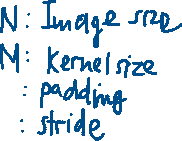 N: Image size
M: Kernel size
: padding
: stride